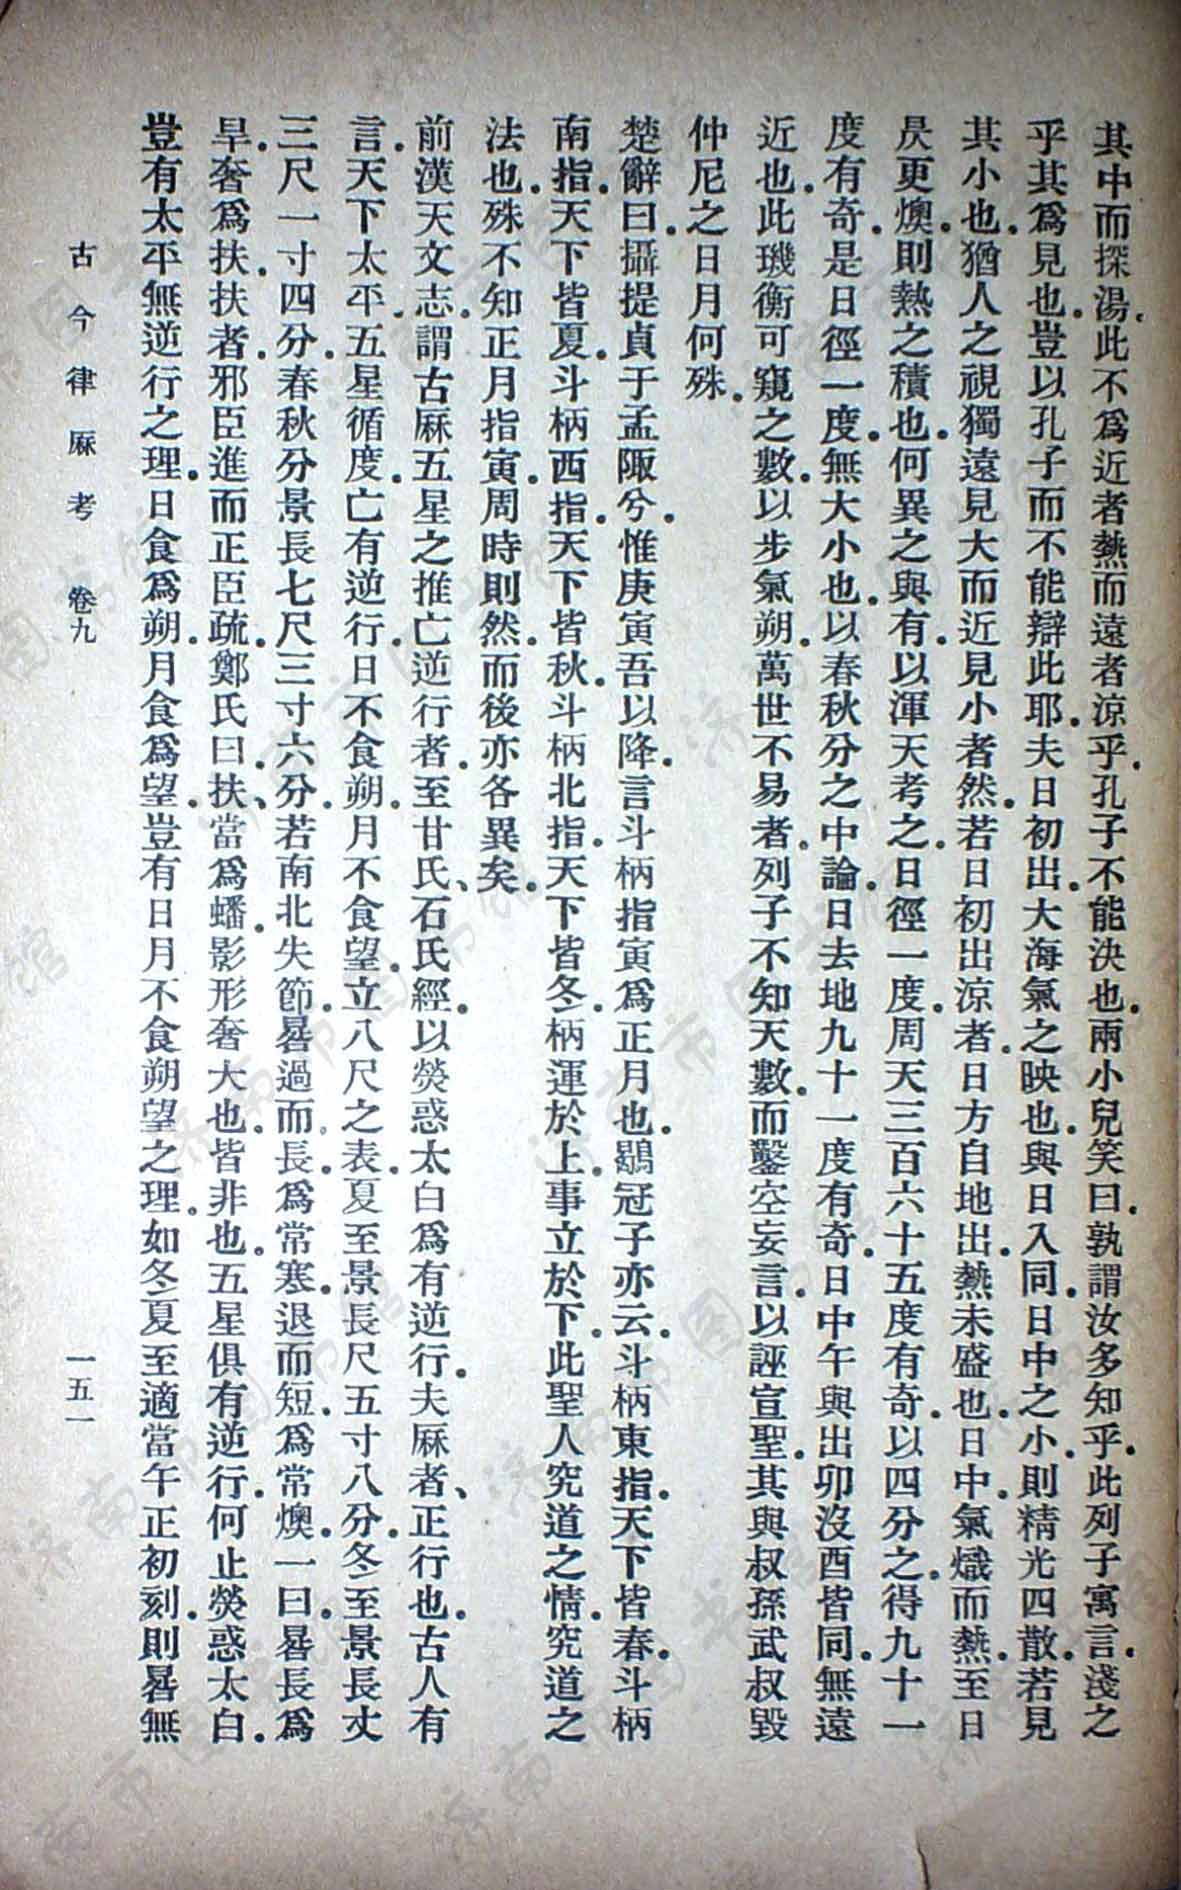 其中而探湯。此不爲近者熱而遠者涼乎。孔子不能決也。兩小兒笑曰。孰謂汝多知乎。此列子寓言。淺之
乎其爲見也。豈以孔子而不能辯此耶。夫日初出。大海氣之映也。與日入同。日中之小。則精光四散。若見
其小也。猶人之視獨遠見大而近見小者然。若日初出涼者。日方自地出。熱未盛也。日中。氣熾而熱。至日
昃更燠。則熱之積也。何異之與有。以渾天考之。日徑一度。周天三百六十五度有奇。以四分之。得九十一
度有奇。是日徑一度。無大小也。以春秋分之中論。日去地九十一度有奇。日中午與出卯沒酉皆同。無遠
近也。此璣衡可窺之數。以步氣朔。萬世不易者。列子不知天數。而鑿空妄言。以誣宣聖。其與叔孫武叔毀
仲尼之日月何殊。
楚辭曰。攝提貞于孟陬兮。惟庚寅吾以降。言斗柄指寅爲正月也。鶡冠子亦云。斗柄東指。天下皆春。斗柄
南指。天下皆夏。斗柄西指。天下皆秋。斗柄北指。天下皆冬。柄運於上。事立於下。此聖人究道之情。究道之
法也。殊不知正月指寅。周時則然。而後亦各異矣。
前漢天文志。謂古厤五星之推。亡逆行者。至甘氏、石氏經。以熒惑太白爲有逆行。夫厤者、正行也。古人有
言。天下太平。五星循度。亡有逆行。日不食朔。月不食望。立八尺之表。夏至景長尺五寸八分。冬至景長丈
三尺一寸四分。春秋分景長七尺三寸六分。若南北失節。晷過而長。爲常寒。退而短。爲常燠。一曰。晷長爲
旱。奢爲扶。扶者。邪臣進而正臣疏。鄭氏曰。扶、當爲蟠。影形奢大也。皆非也。五星俱有逆行。何止熒惑太白。
豈有太平無逆行之理。日食爲朔。月食爲望。豈有日月不食朔望之理。如冬夏至適當午正初刻。則晷無
古今律厤考 卷九 一五一